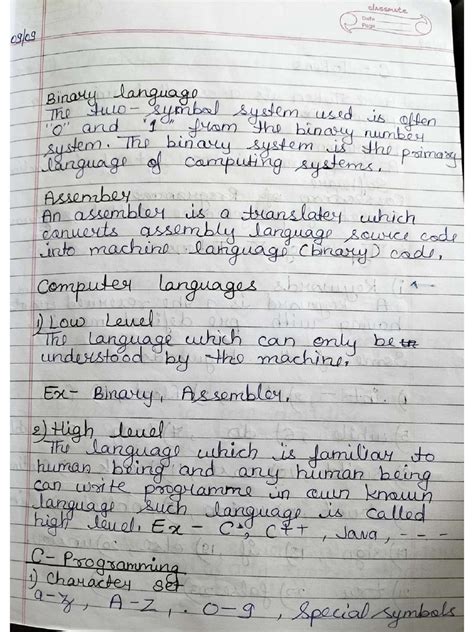 classmate
Date
Page
03/09
Binary language
The two-symbol system used is often
"0" and "1" from the binary number
system. The binary system is the primary
language of computing systems.
Assember
An assembler is a translater which
canverts assembly language source code
into machine language (binary) code.
Computer languages
1) Low Level
The Language which can only be
understood by the machine.
Ex- Binary, Assembler.
2) High level
The language which is familiar to
human being and any human being
can write programme in own known
language such language is called
high level. Ex - C, C++, Java, ---
C- Programming
1) Character set
a-z, A-Z, 0-9, special symbols